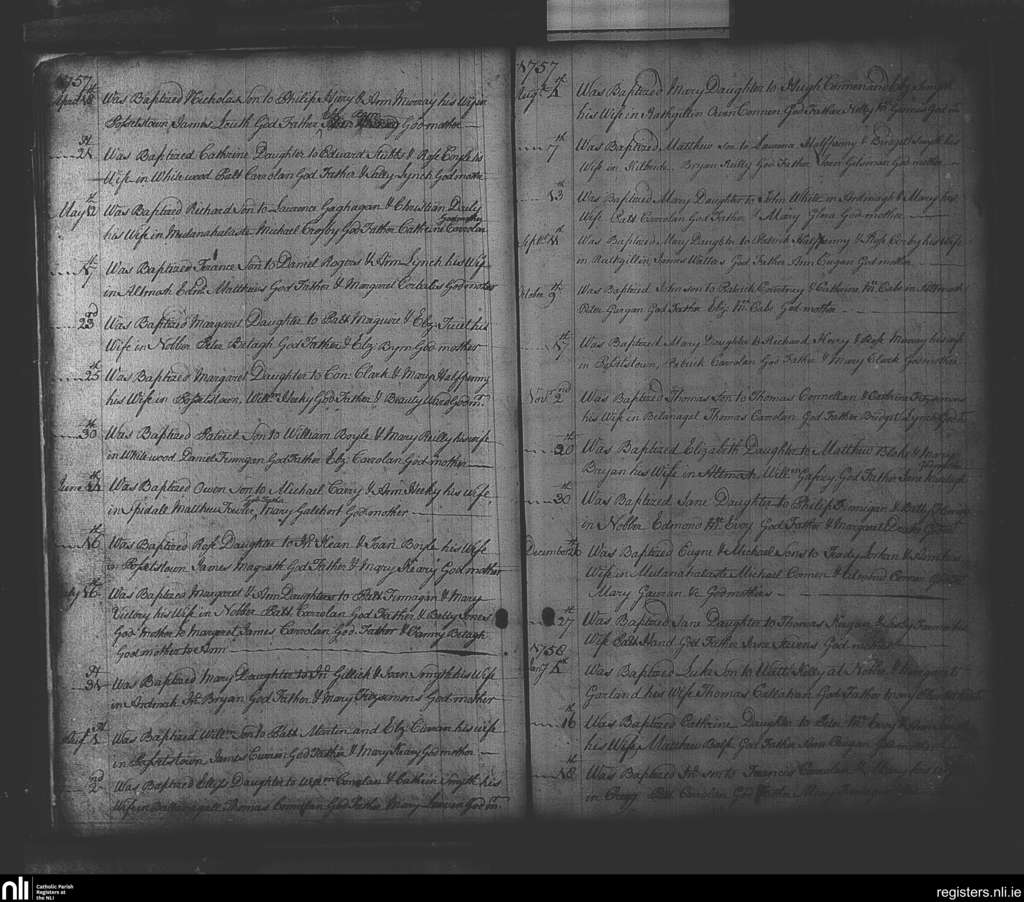 1757
April 18th Was Baptized Nicholas Son to Philip & Ann Murray his Wife in
Posseltstown James Louth God Father God mother
21st Was Baptized Cathrine Daughter to Edward Stubbs & Rose Coyle his
Wife in Whitewood Patt Carrolan God Father & Lilly Lynch God mother
May 12th Was Baptized Richard Son to Laurence Gaghagan & Christian Daily
his Wife in Mulanahataste Michael Crosby God Father Cathrine Carrolan Godmother
17th Was Baptized Terance Son to Daniel Rogers & Ann Lynch his Wife
in Altmash Edwd. Matthews God Father & Margaret Corbales Godmother
23rd Was Baptized Margaret Daughter to Patt Maguire & Eliz Tuiet his
Wife in Nobber Peter Betagh God Father & Eliz Byrn God mother
25th Was Baptized Margaret Daughter to Con Clark & Mary Halfpenny
his Wife in Posseltstown, Willm. Heeky God Father & Beauty Ward Godm.
30th Was Baptized Patrick Son to William Boyle & Mary Reilly his wife
in Whitewood Daniel Finnigan God Father Eliz. Carrolan God mother
June Was Baptized Owen Son to Michael Carry & Ann Heeky his Wife
in Spidale Matthew Fowler God Father Mary Galehert God mother
16th Was Baptized Rose Daughter to Jno. Kean & Joan Boyle his Wife
in Posseltstown James Magrath God Father & Mary Keary God mother
July 16th Was Baptized Margaret & Ann Daughters to Patt Finnagan & Mary
Victory his Wife in Nobber Patt Carrolan God Father & Betty Jones
God mother to Margaret James Carrolan God Father & Fanny Betagh
God mother to Ann
31st Was Baptized Mary Daughter to Jno. Gillick & Joan Smyth his Wife
in Ardmah Jno. Bryan God Father & Mary Fitzsimons God mother
Augt. 1st Was Baptized Willm. Son to Patt Martin and Eliz Curran his wife
in Posseltstown James Curran God Father & Mary Keary God mother
2nd Was Baptized Daughter to Conolan & Cathrin Smyth his
Wife in Thomas God Father Mary God m.
1757
Augt. 4th Was Baptized Mary Daughter to Hugh Connen and Eliz Smyth
his Wife in Rathgillin Owen Connen God Father Nelly God m.
7th Was Baptized Matthew Son to Laurence Halfpenny & Bridget Smyth his
Wife in Kilbride Bryan Reilly God Father God mother
13th Was Baptized Mary Daughter to John White in Ardmagh & Mary his
Wife Patt Carrolan God Father & Mary God mother
Septbr. 11th Was Baptized Mary Daughter to Patrick Halfpenny & Rose Corby his Wife
in Rathgillin James Watters God Father Ann Eugan God mother
October 9th Was Baptized John son to Patrick & Cathrine Mc. Cabe in Altmash
Peter Gargan God Father Eliz. Mc. Cabe God mother
17th Was Baptized Mary Daughter to Richard Henry & Rose Murray his wife
in Posseltstown, Patrick Carrolan God Father & Mary Clark God mother
Novr. 2nd Was Baptized Thomas Son to Thomas Connellan & Cathrine Fitzsimons
his Wife in Belanagel Thomas Carolan God Father Bridget Lynch
20th Was Baptized Elizabeth Daughter to Matthew Blake & Mary
Bryan his Wife in Altmash Willm. Gafney God Father Jane
30 Was Baptized Jane Daughter to Philip Finnigan & Betty
in Nobber Edmond Mc. Evoy God Father & Margaret
December Was Baptized Eugne & Michael Sons to Teady & his
Wife in Mulanahataste Michael Connen & Edmond Connen
Mary & Godmothers
27th Was Baptized Jane Daughter to Thomas Reagan & his
Wife Patt Hand God Father Jane Stevens God mother
1758
Jany 4th Was Baptized Luke Son to Watt Kelly at Nobber & Margaret
Garland his Wife Thomas Callahan God Father
16th Was Baptized Cathrine Daughter to Peter Mc. Evoy &
his Wife Matthew Balfe God Father Ann God mother
18th Was Baptized Jno. son to Francis Carrolan & Mary his wife
in Patt Carrolan God Father Mary
nli Catholic Parish
Registers at
the NLI
registers.nli.ie